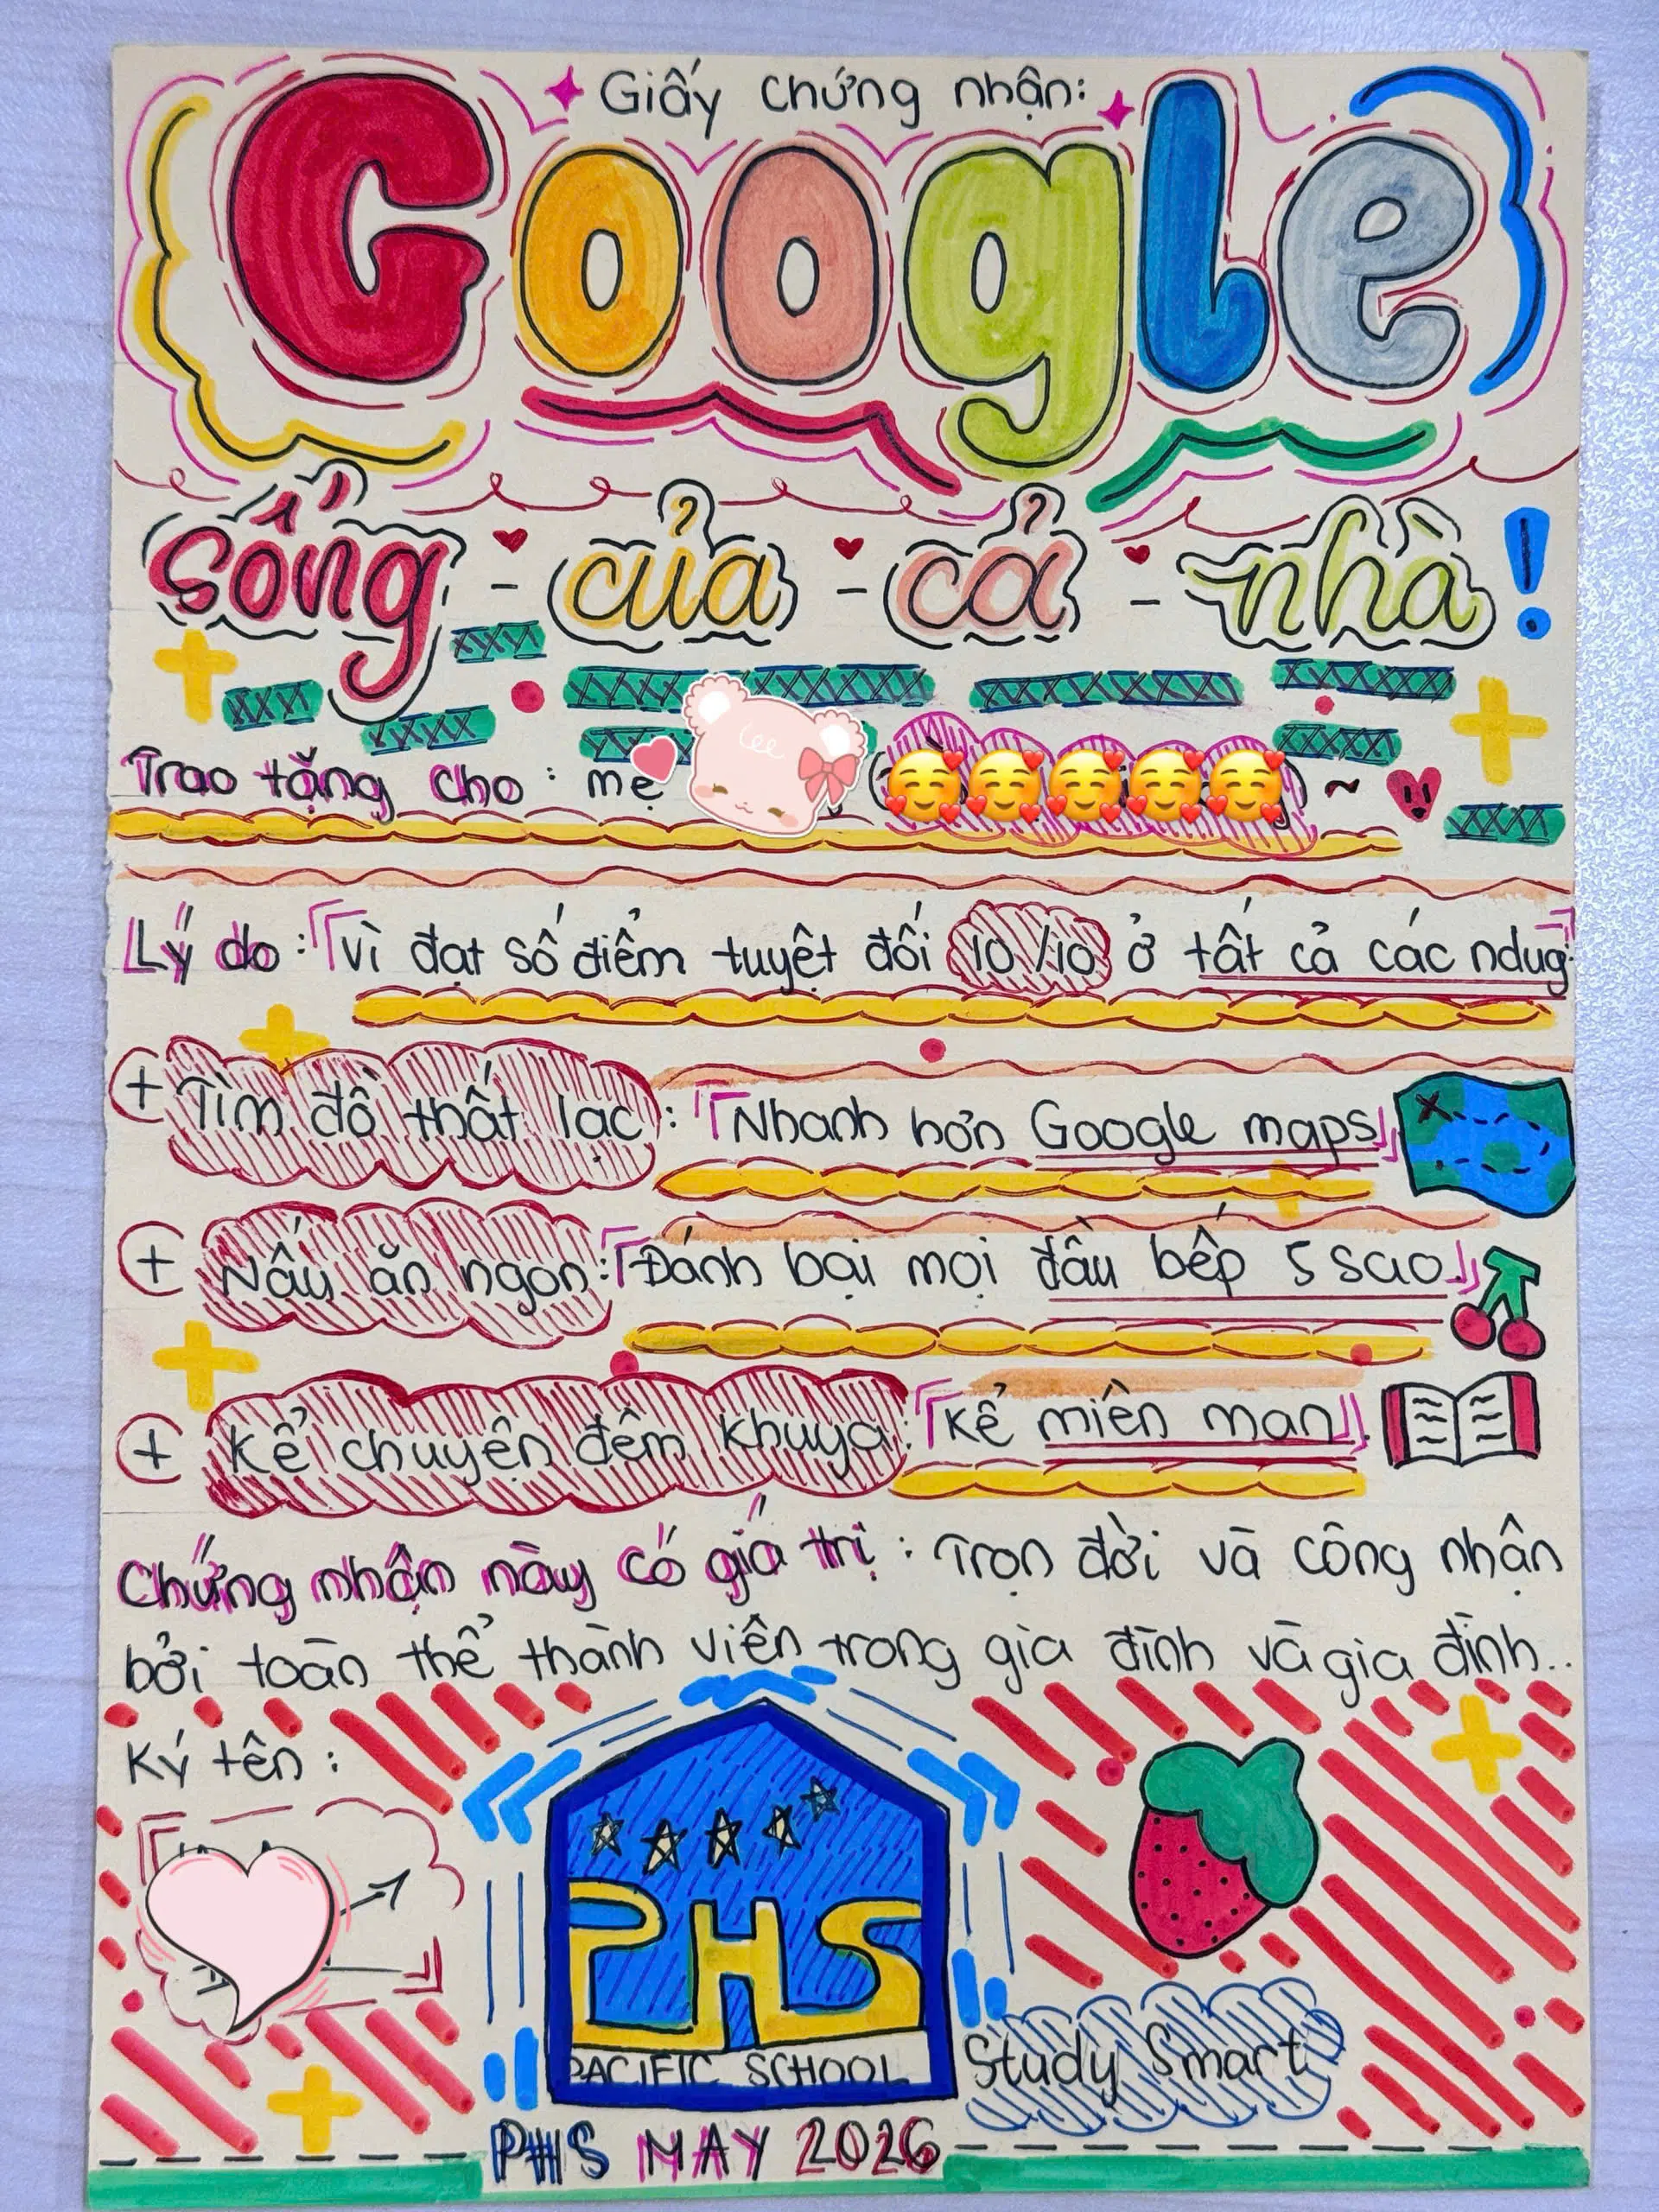 Giấy chứng nhận:
Google
sống - của - cả - nhà!
Trao tặng cho: mẹ
Lý do: 「Vì đạt số điểm tuyệt đối 10/10 ở tất cả các ndug
+ Tìm đồ thất lạc: 「Nhanh hơn Google maps」
+ Nấu ăn ngon: 「Đánh bại mọi đầu bếp 5 sao.」
+ Kể chuyện đêm khuya: 「Kể miên man」.
Chứng nhận này có giá trị: Trọn đời và công nhận
bởi toàn thể thành viên trong gia đình và gia đình..
Ký tên:
PHS
PACIFIC SCHOOL
Study Smart
PHS MAY 2026